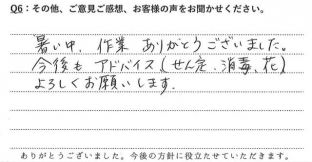 Q6：その他、ご意見ご感想、お客様の声をお聞かせください。
暑い中、作業 ありがとうございました。
今後も アドバイス(せん定、消毒、花)
よろしくお願いします。
ありがとうございました。今後の方針に役立たせていただきます。